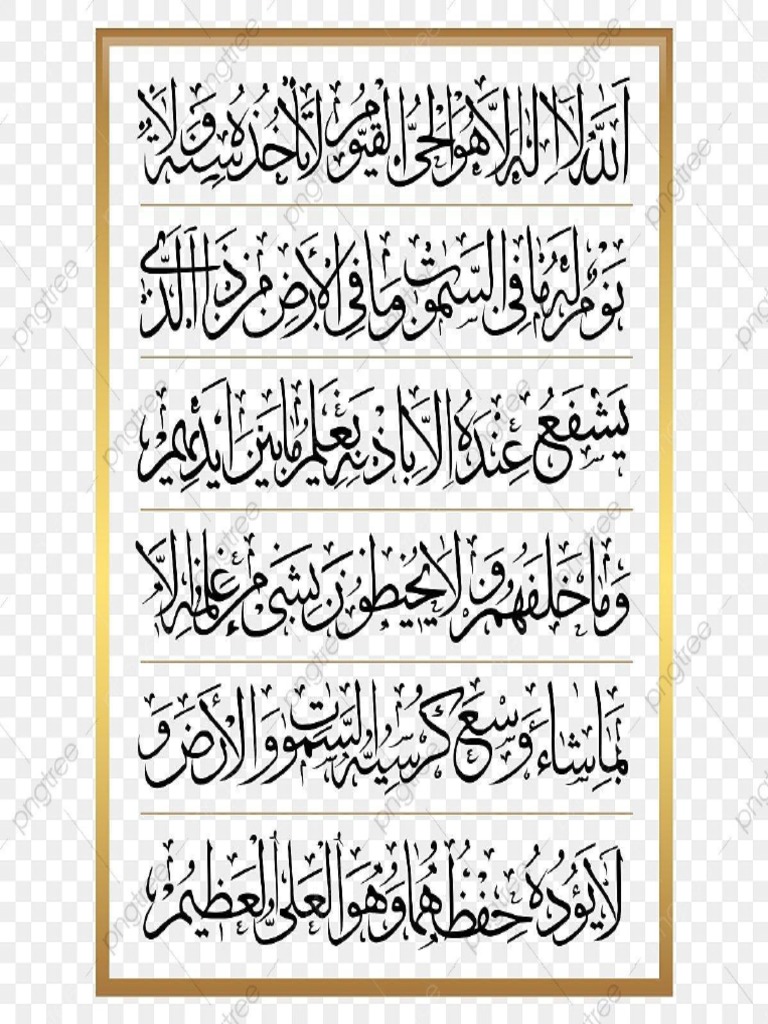 اَللّٰهُ لَا اِلٰهَ اِلَّا هُوَ الْحَيُّ الْقَيُّوْمُ لَا تَأْخُذُهٗ سِنَةٌ وَّلَا
نَوْمٌ لَهٗ مَا فِي السَّمٰوٰتِ وَمَا فِي الْاَرْضِ مَنْ ذَا الَّذِيْ
يَشْفَعُ عِنْدَهٗ اِلَّا بِاِذْنِهٖ يَعْلَمُ مَا بَيْنَ اَيْدِيْهِمْ
وَمَا خَلْفَهُمْ وَلَا يُحِيْطُوْنَ بِشَيْءٍ مِّنْ عِلْمِهٖ اِلَّا
بِمَا شَاءَ وَسِعَ كُرْسِيُّهُ السَّمٰوٰتِ وَالْاَرْضَ وَ
لَا يَؤُدُهٗ حِفْظُهُمَا وَهُوَ الْعَلِيُّ الْعَظِيْمُ
pngtree